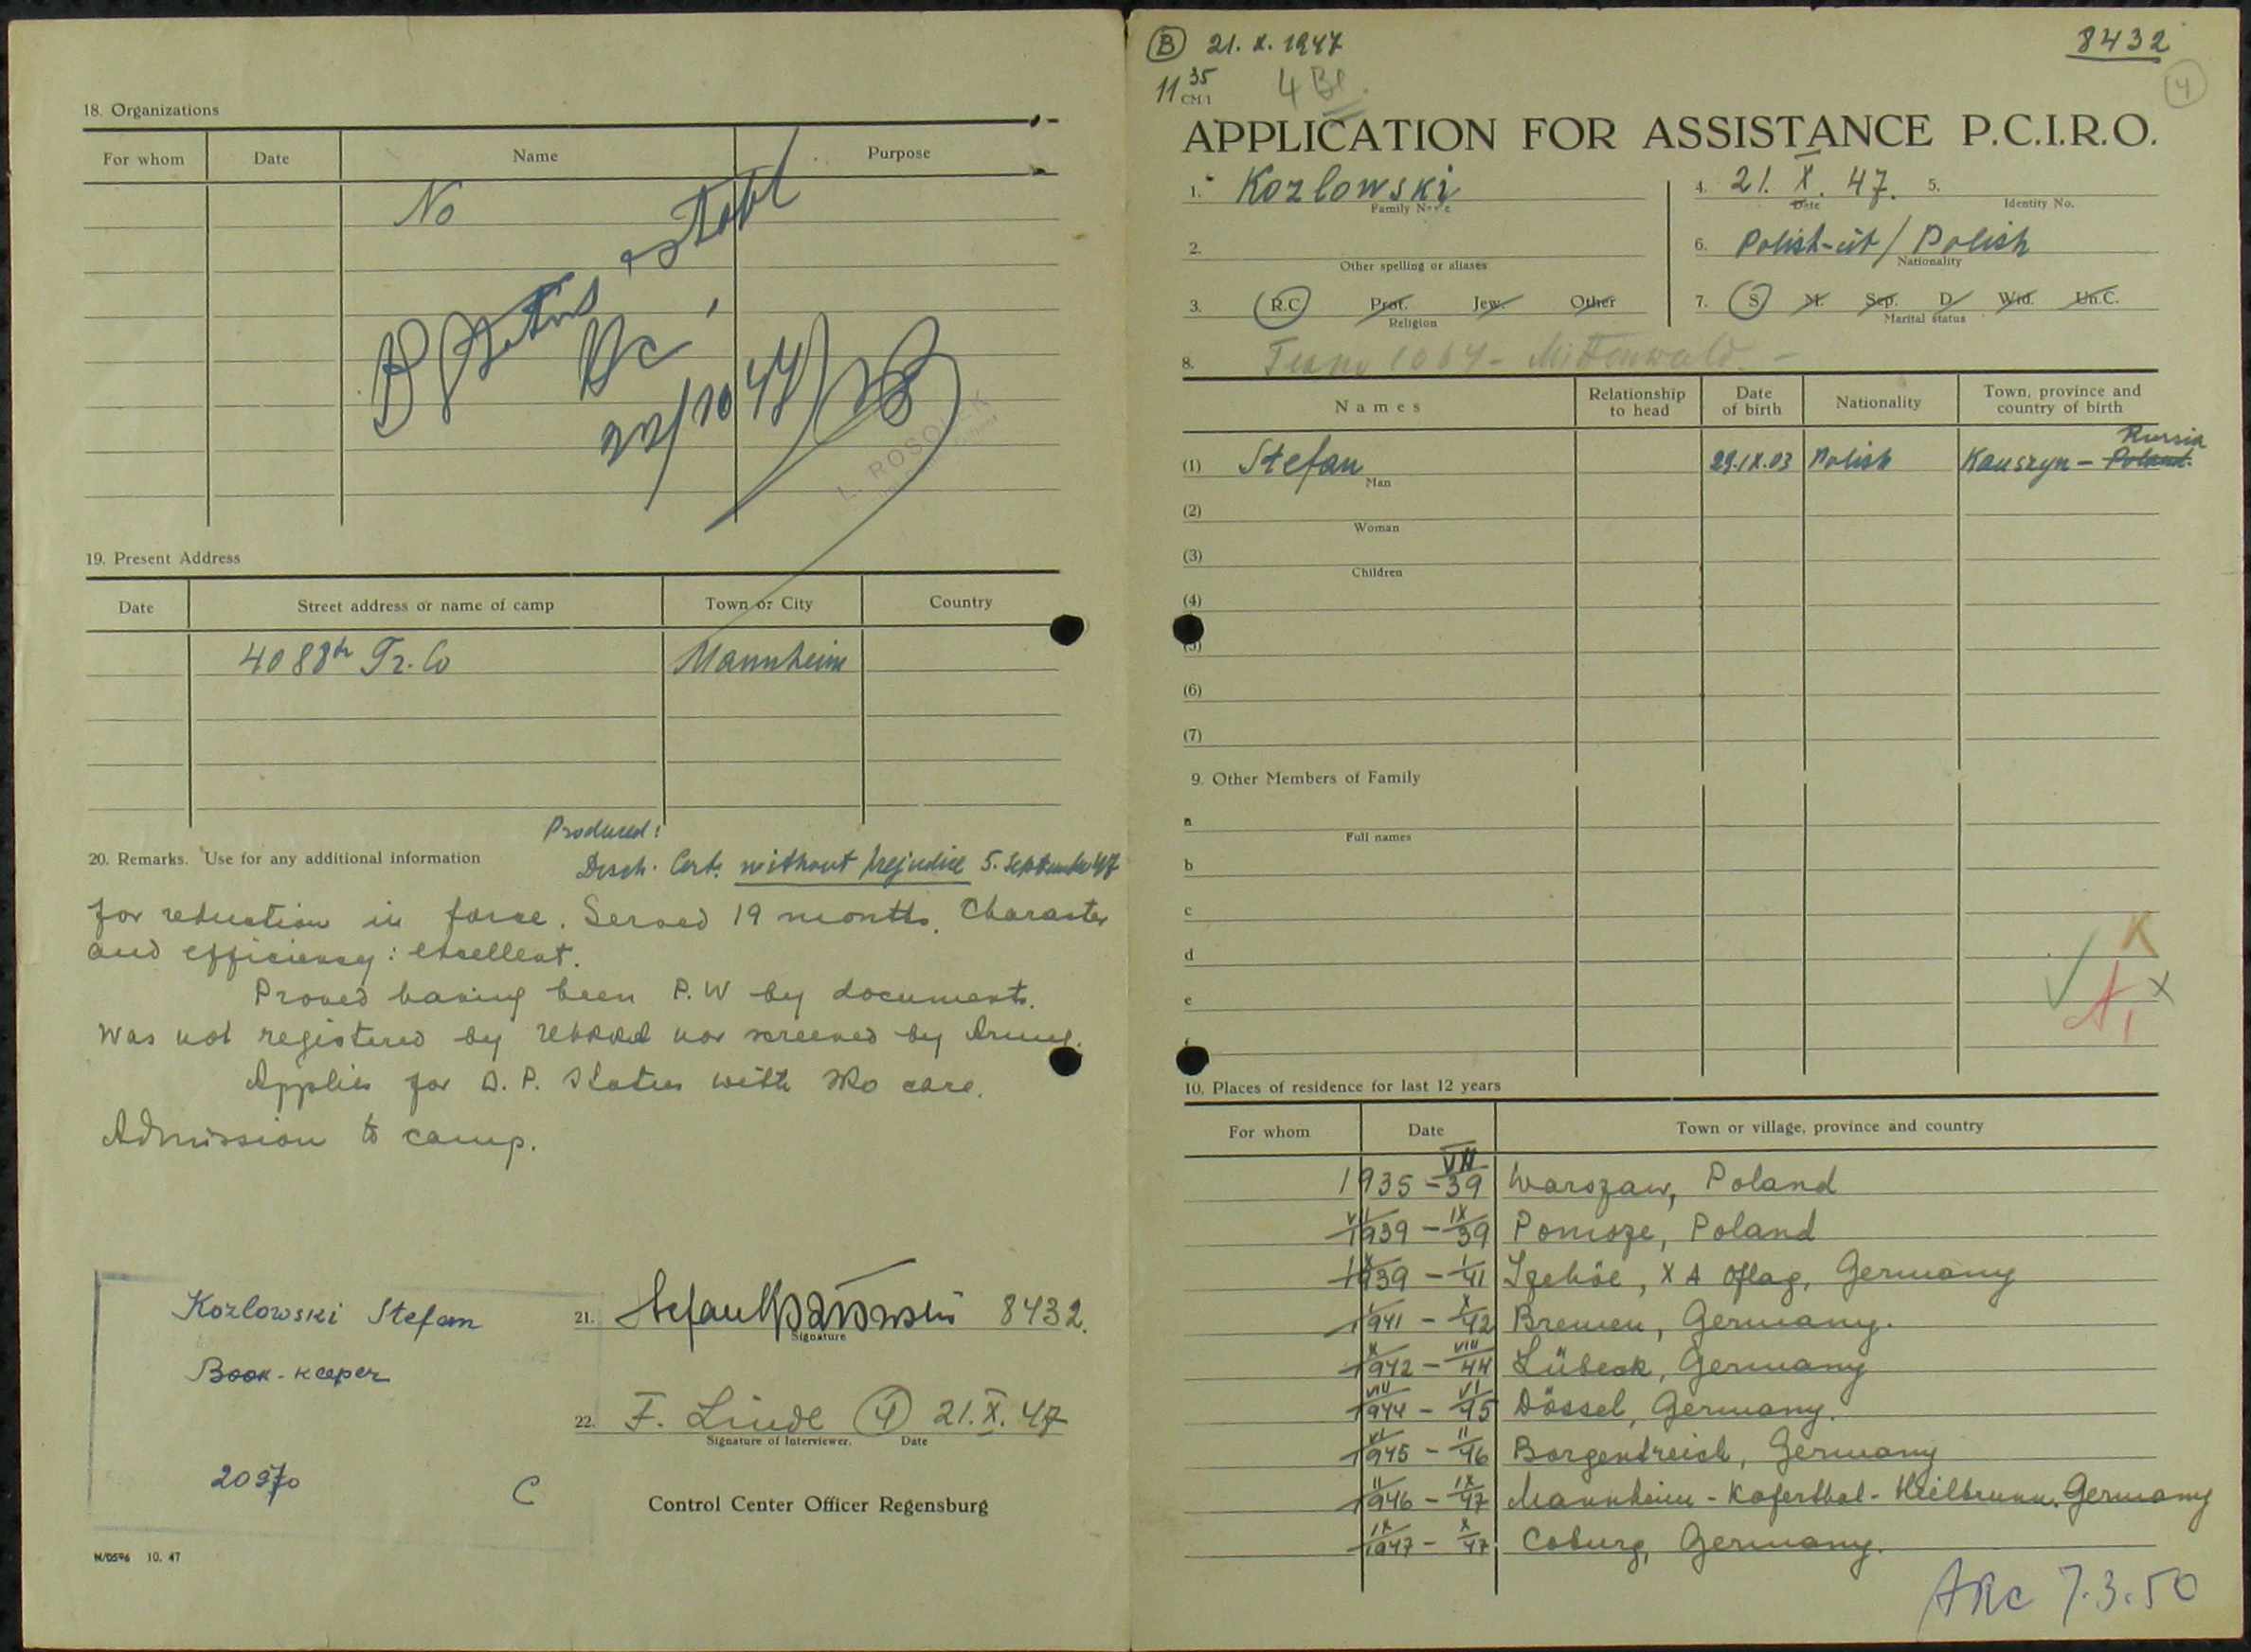 18. Organizations
For whom Date Name Purpose
No
DP Status establ
22/10 47
L. ROSO
19. Present Address
Date Street address or name of camp Town or City Country
4088th Tr. Co Mannheim
Produced:
20. Remarks. Use for any additional information
Disch. Cert. without prejudice 5. September 47
for reduction in force. Served 19 months. Character
and efficiency: excellent.
Proved having been P.W by documents.
Was not registered by UNRRA nor screened by Army.
Applies for D.P. Status with IRO care.
Admission to camp.
Kozlowski Stefan
Book-keeper
20970 C
21. Stefan Kozlowski 8432.
Signature
22. F. Lindl (4) 21.X.47
Signature of Interviewer. Date
Control Center Officer Regensburg
N/0596 10. 47
(B) 21. X. 1947
8432
11 35
CM/1
4 Bl.
4
APPLICATION FOR ASSISTANCE P.C.I.R.O.
1. Kozlowski
Family Name
4. 21. X. 47. 5.
Date Identity No.
2.
Other spelling or aliases
6. Polish-cit / Polish
Nationality
3. R.C Prot. Jew. Other
Religion
7. S M. Sep. D. Wid. Un.C.
Marital status
8. Trans 1064 - Mittenwald -
Names Relationship to head Date of birth Nationality Town, province and country of birth
Russia
(1) Stefan 29.IX.03 Polish Kauszyn - Poland.
Man
(2)
Woman
(3)
Children
(4)
(5)
(6)
(7)
9. Other Members of Family
a
Full names
b
c
d
K
e
A1 x
f
10. Places of residence for last 12 years
For whom Date Town or village, province and country
1935 - VII/39 Warszaw, Poland
1939 - IX/39 Pomoze, Poland
X/1939 - I/41 Izehöe, X A Oflag, Germany
I/1941 - X/42 Bremen, Germany.
X/1942 - VIII/44 Lübeck, Germany
VIII/1944 - VI/45 Dössel, Germany.
VI/1945 - II/46 Borgentreich, Germany
II/1946 - IX/47 Mannheim - Käferthal - Heilbrunn. Germany
IX/1947 - X/47 Coburg, Germany.
ARC 7.3.50